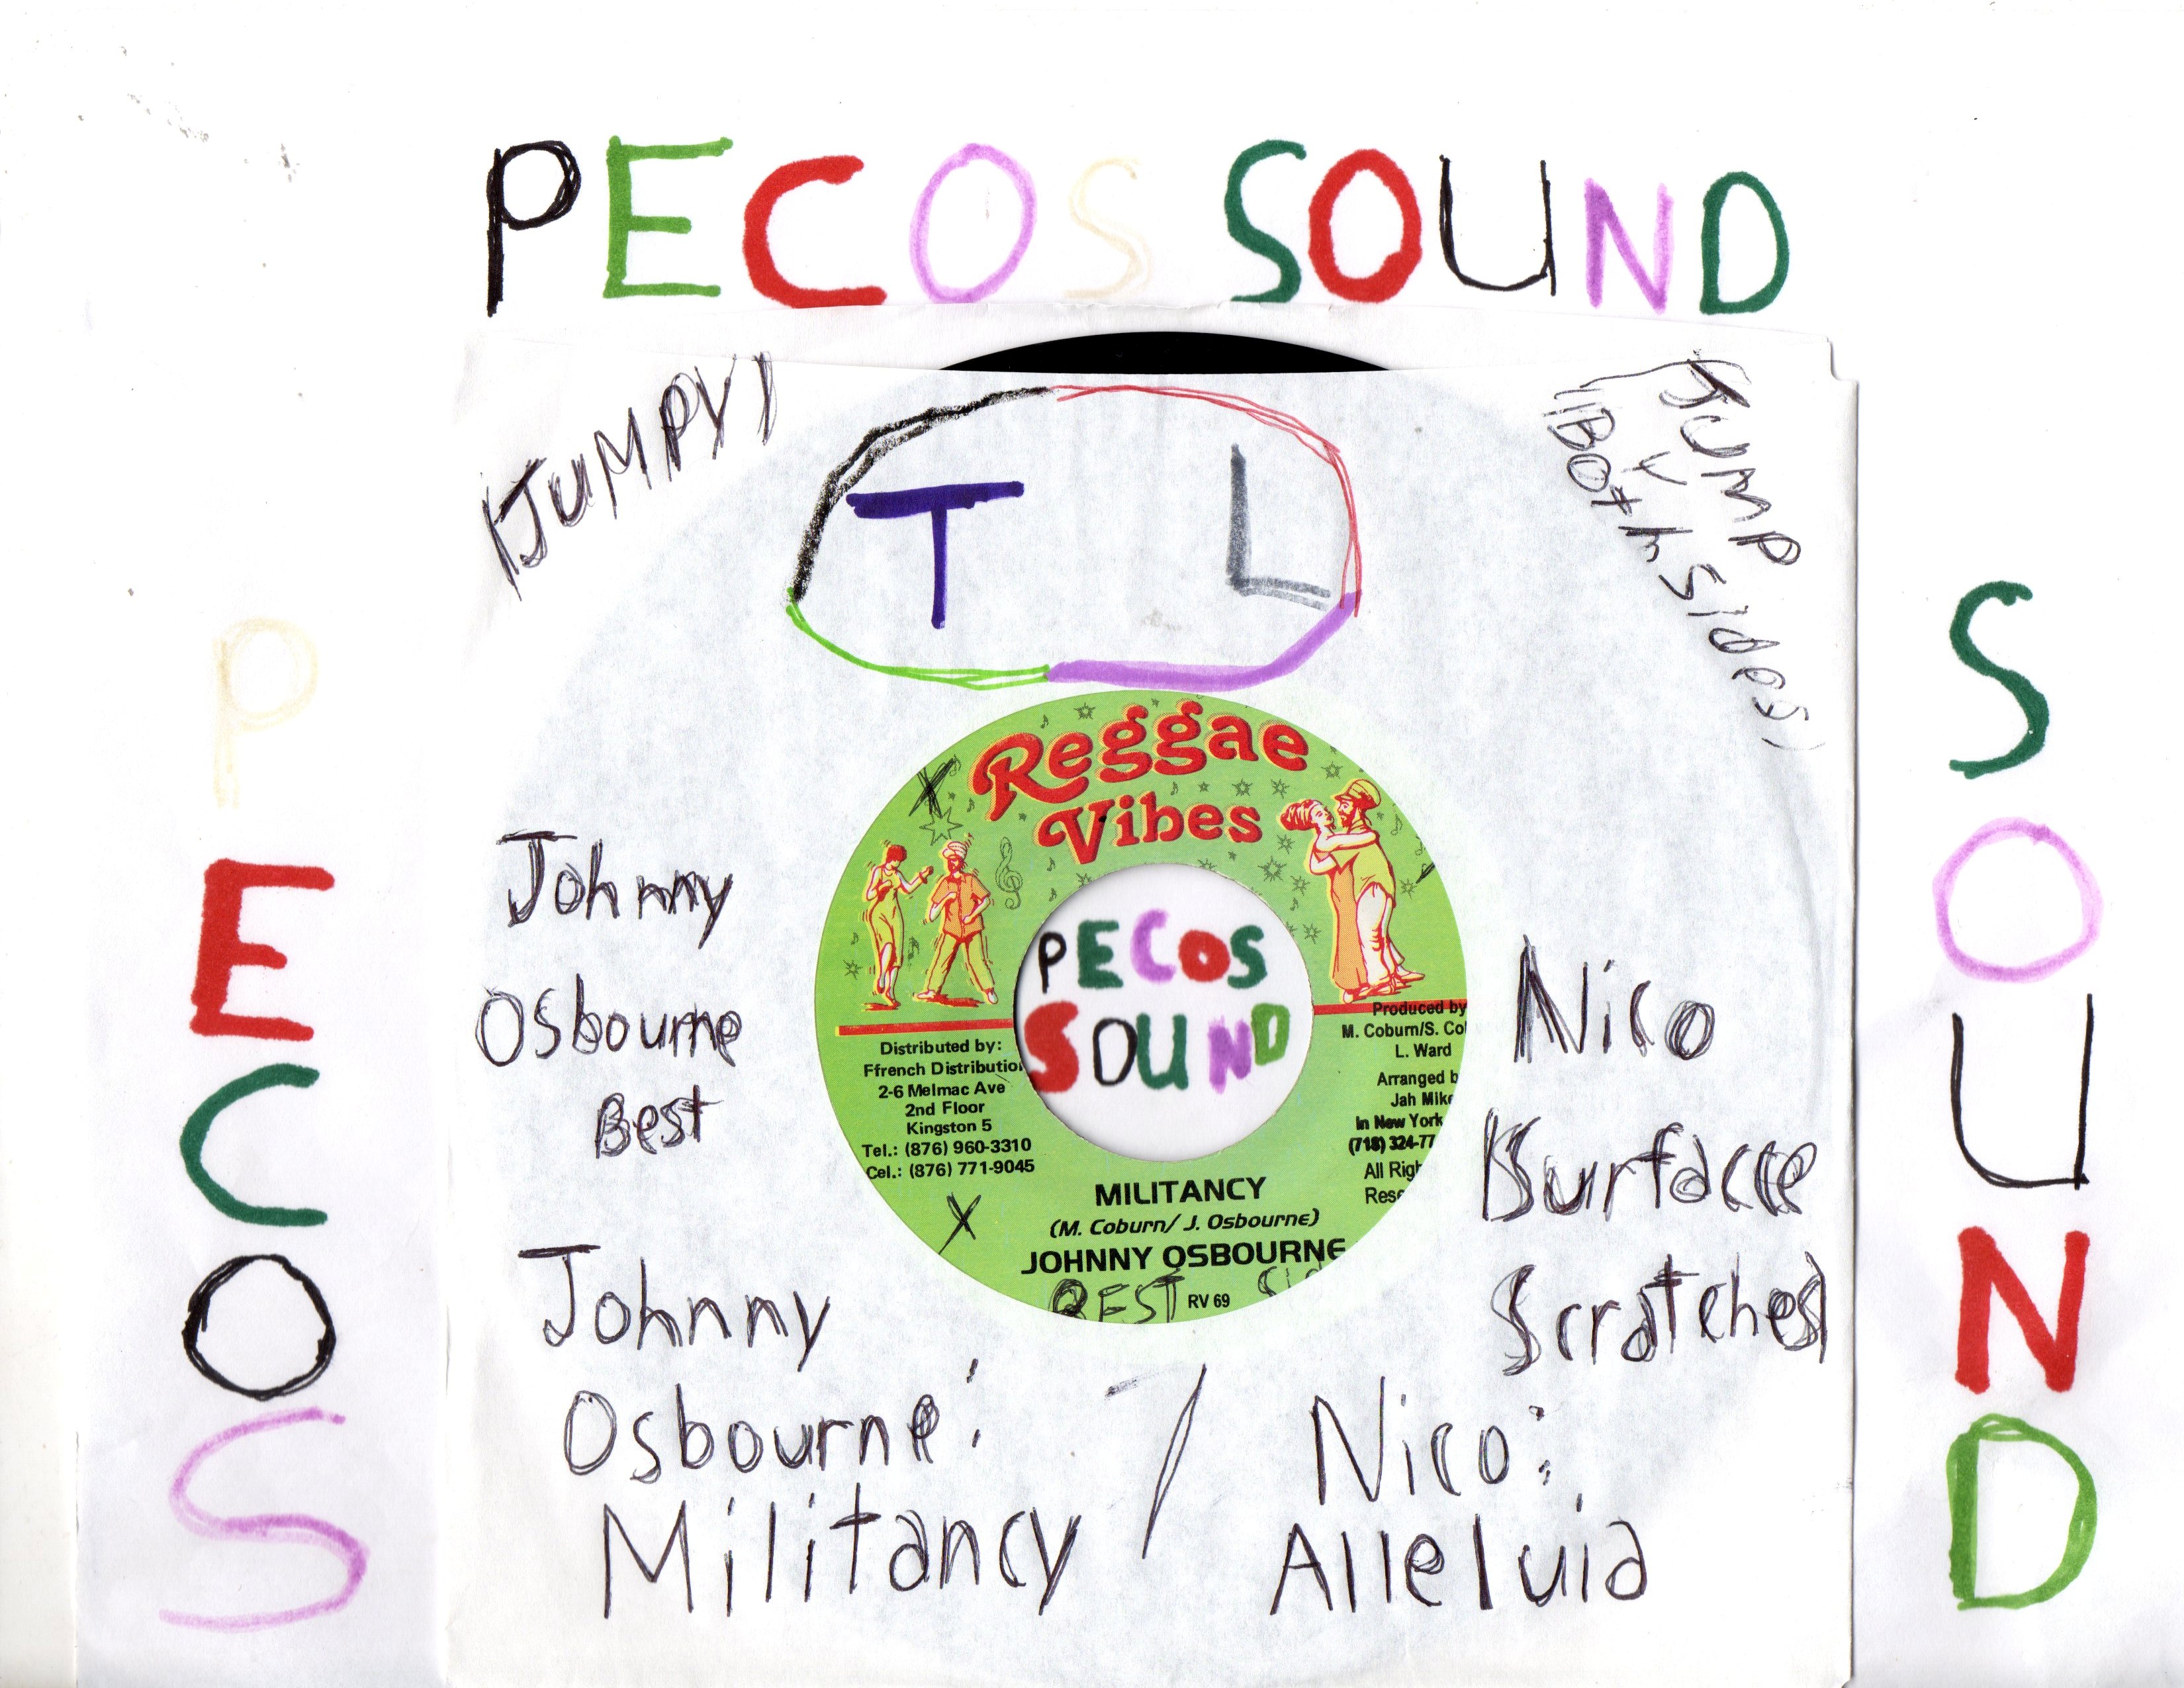 PECOS SOUND
(JUMPY)
JUMP
Y
(Both Sides)
T L
PECOS
SOUND
Reggae
Vibes
PECOS
SOUND
Johnny
Osbourne
Best
Nico
(Surface
Scratches)
Distributed by:
Ffrench Distribution
2-6 Melmac Ave
2nd Floor
Kingston 5
Tel.: (876) 960-3310
Cel.: (876) 771-9045
Produced by
M. Coburn/S. Co
L. Ward
Arranged b
Jah Mike
In New York
(718) 324-77
All Righ
Rese
X
X
MILITANCY
(M. Coburn/ J. Osbourne)
JOHNNY OSBOURNE
BEST
RV 69
Johnny
Osbourne:
Militancy
/
Nico:
Alleluia